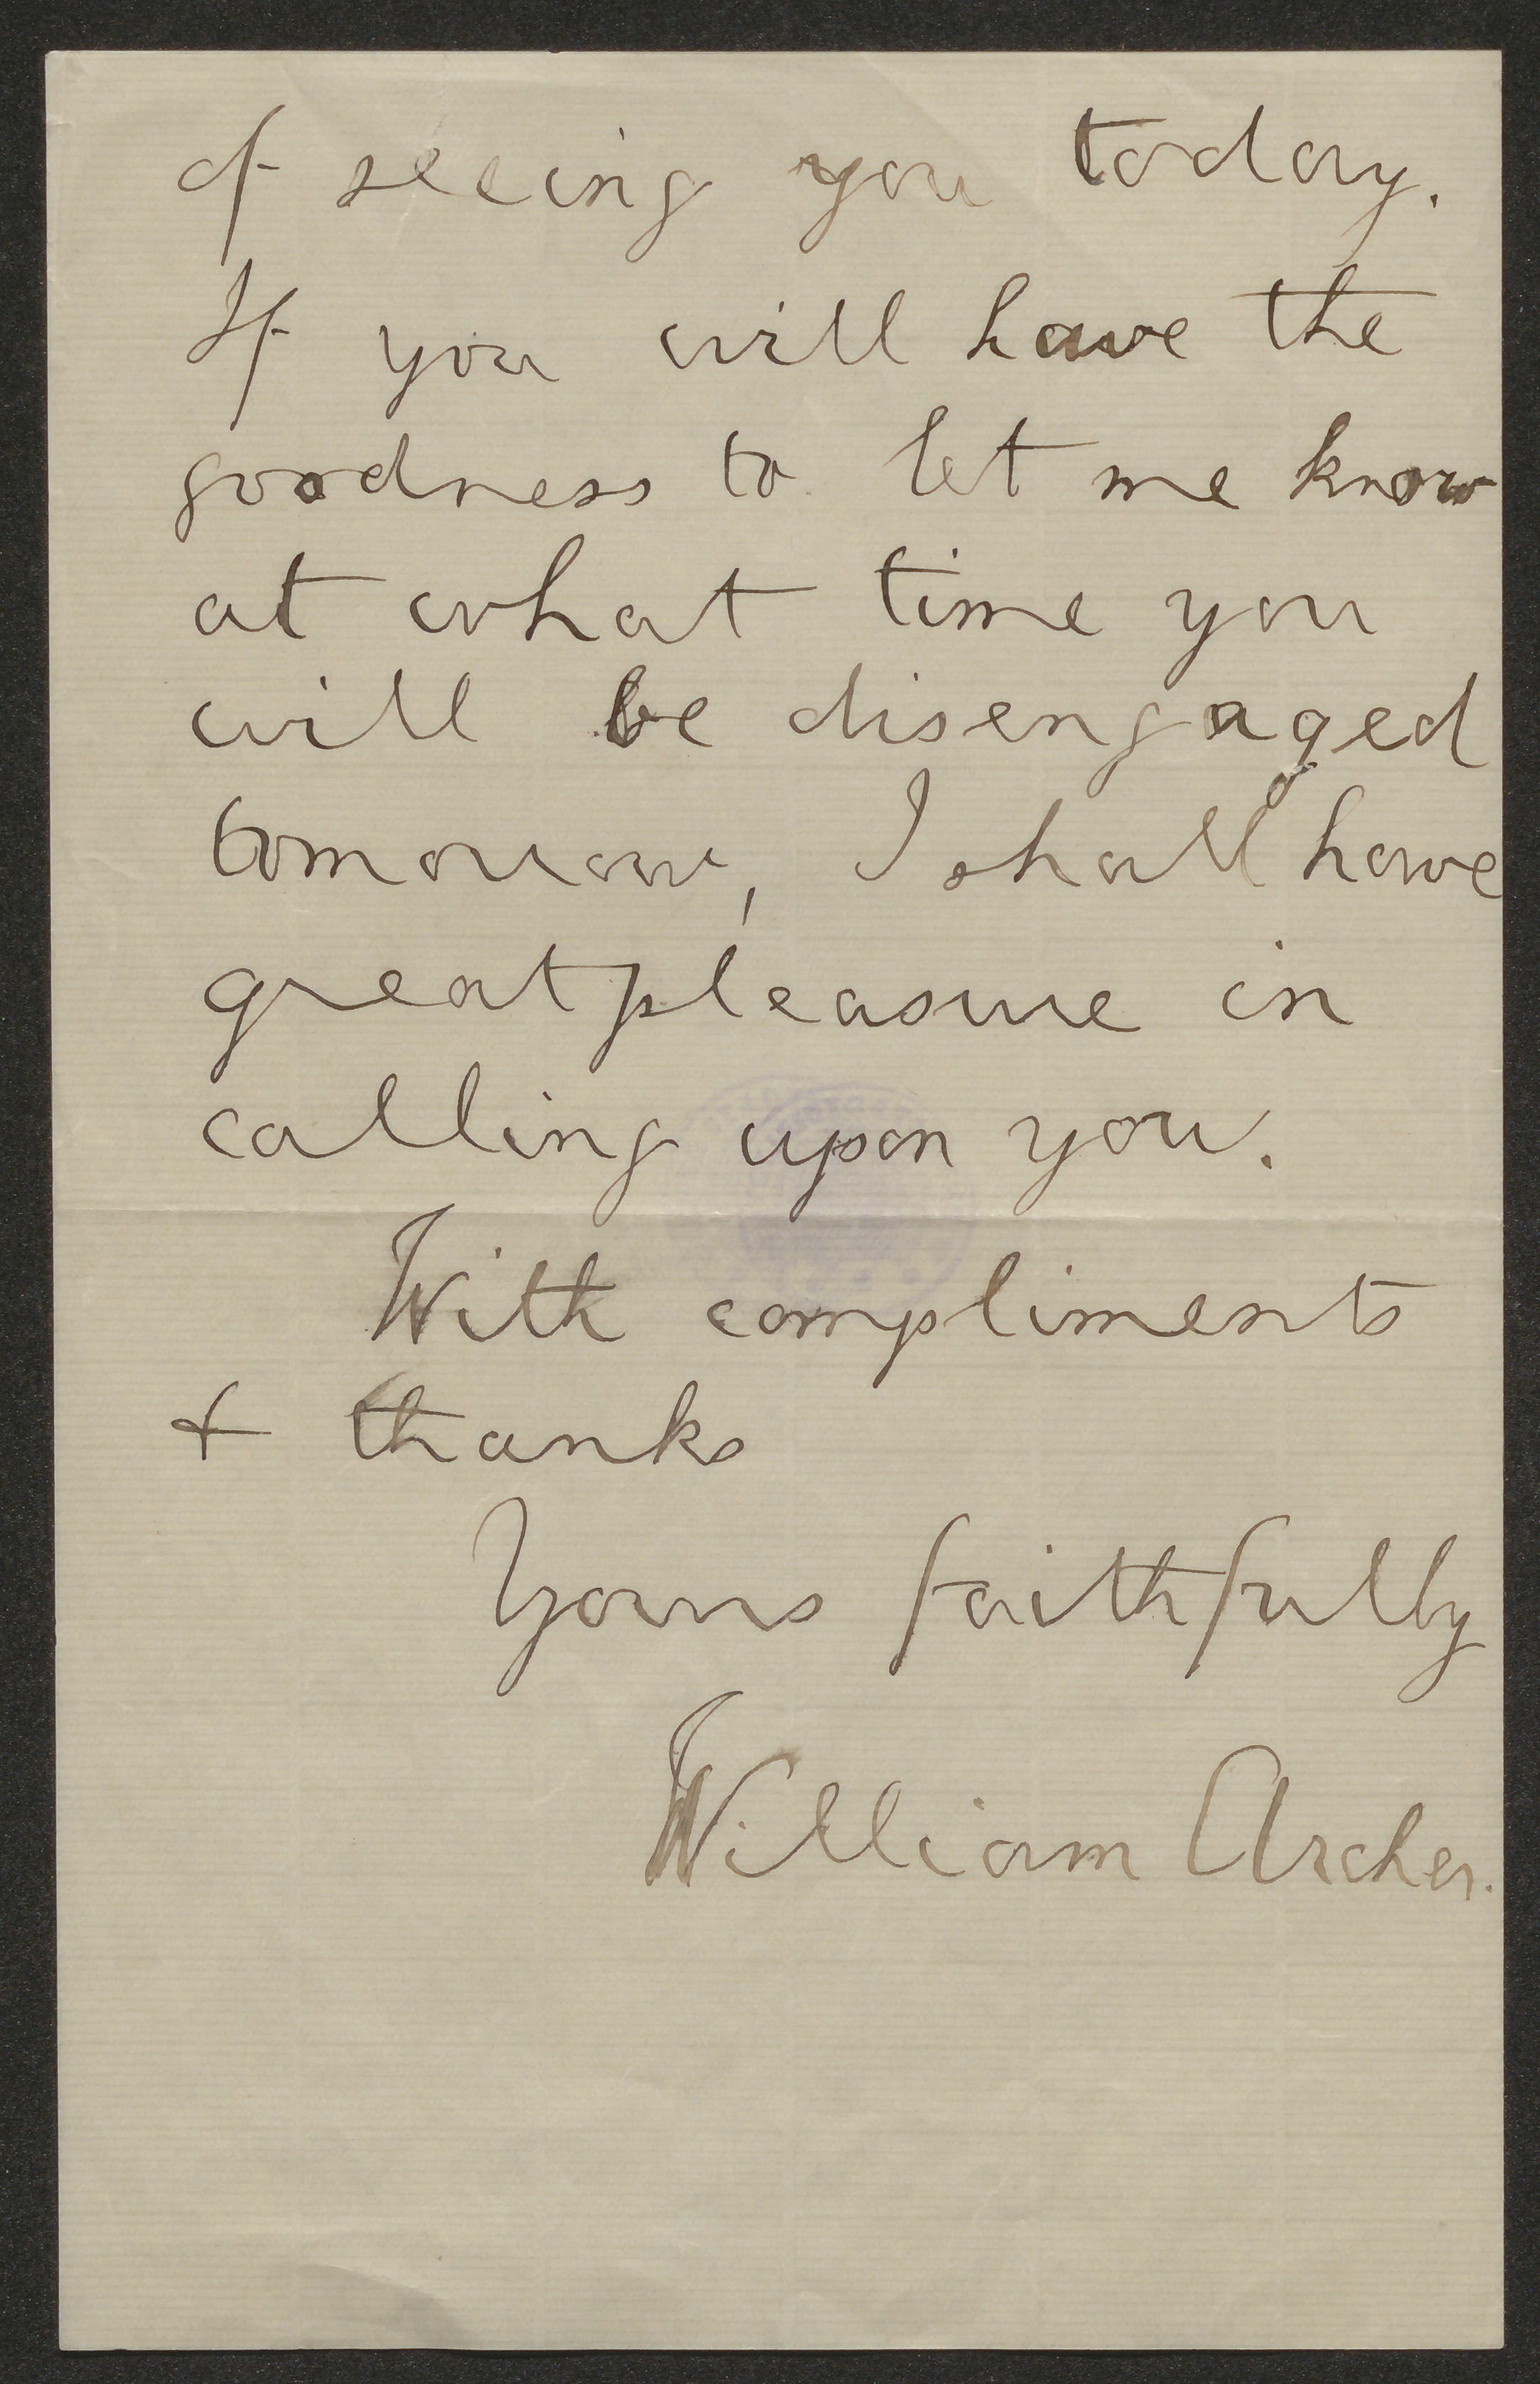 of seeing you today.
If you will have the
goodness to let me know
at what time you
will be disengaged
tomorrow, I shall have
great pleasure in
calling upon you.
With compliments
& thanks
Yours faithfully
William Archer.